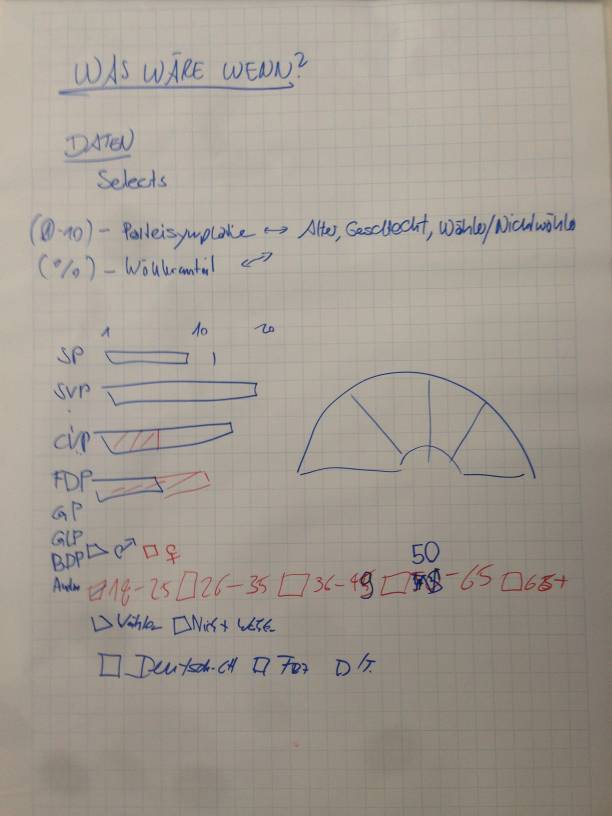 WAS WÄRE WENN?
DATEN
Selects
(0-10) - Parteisympatie ↔ Alter, Geschlecht, Wähler/Nichtwähler
(%) - Wähleranteil ↔
1 10 20
SP
SVP
CVP
FDP
GP
GLP
BDP ♂ ♀
Andere
50
18-25 26-35 36-49 -65 65+
Wähler Nicht Wähler
Deutsch-CH